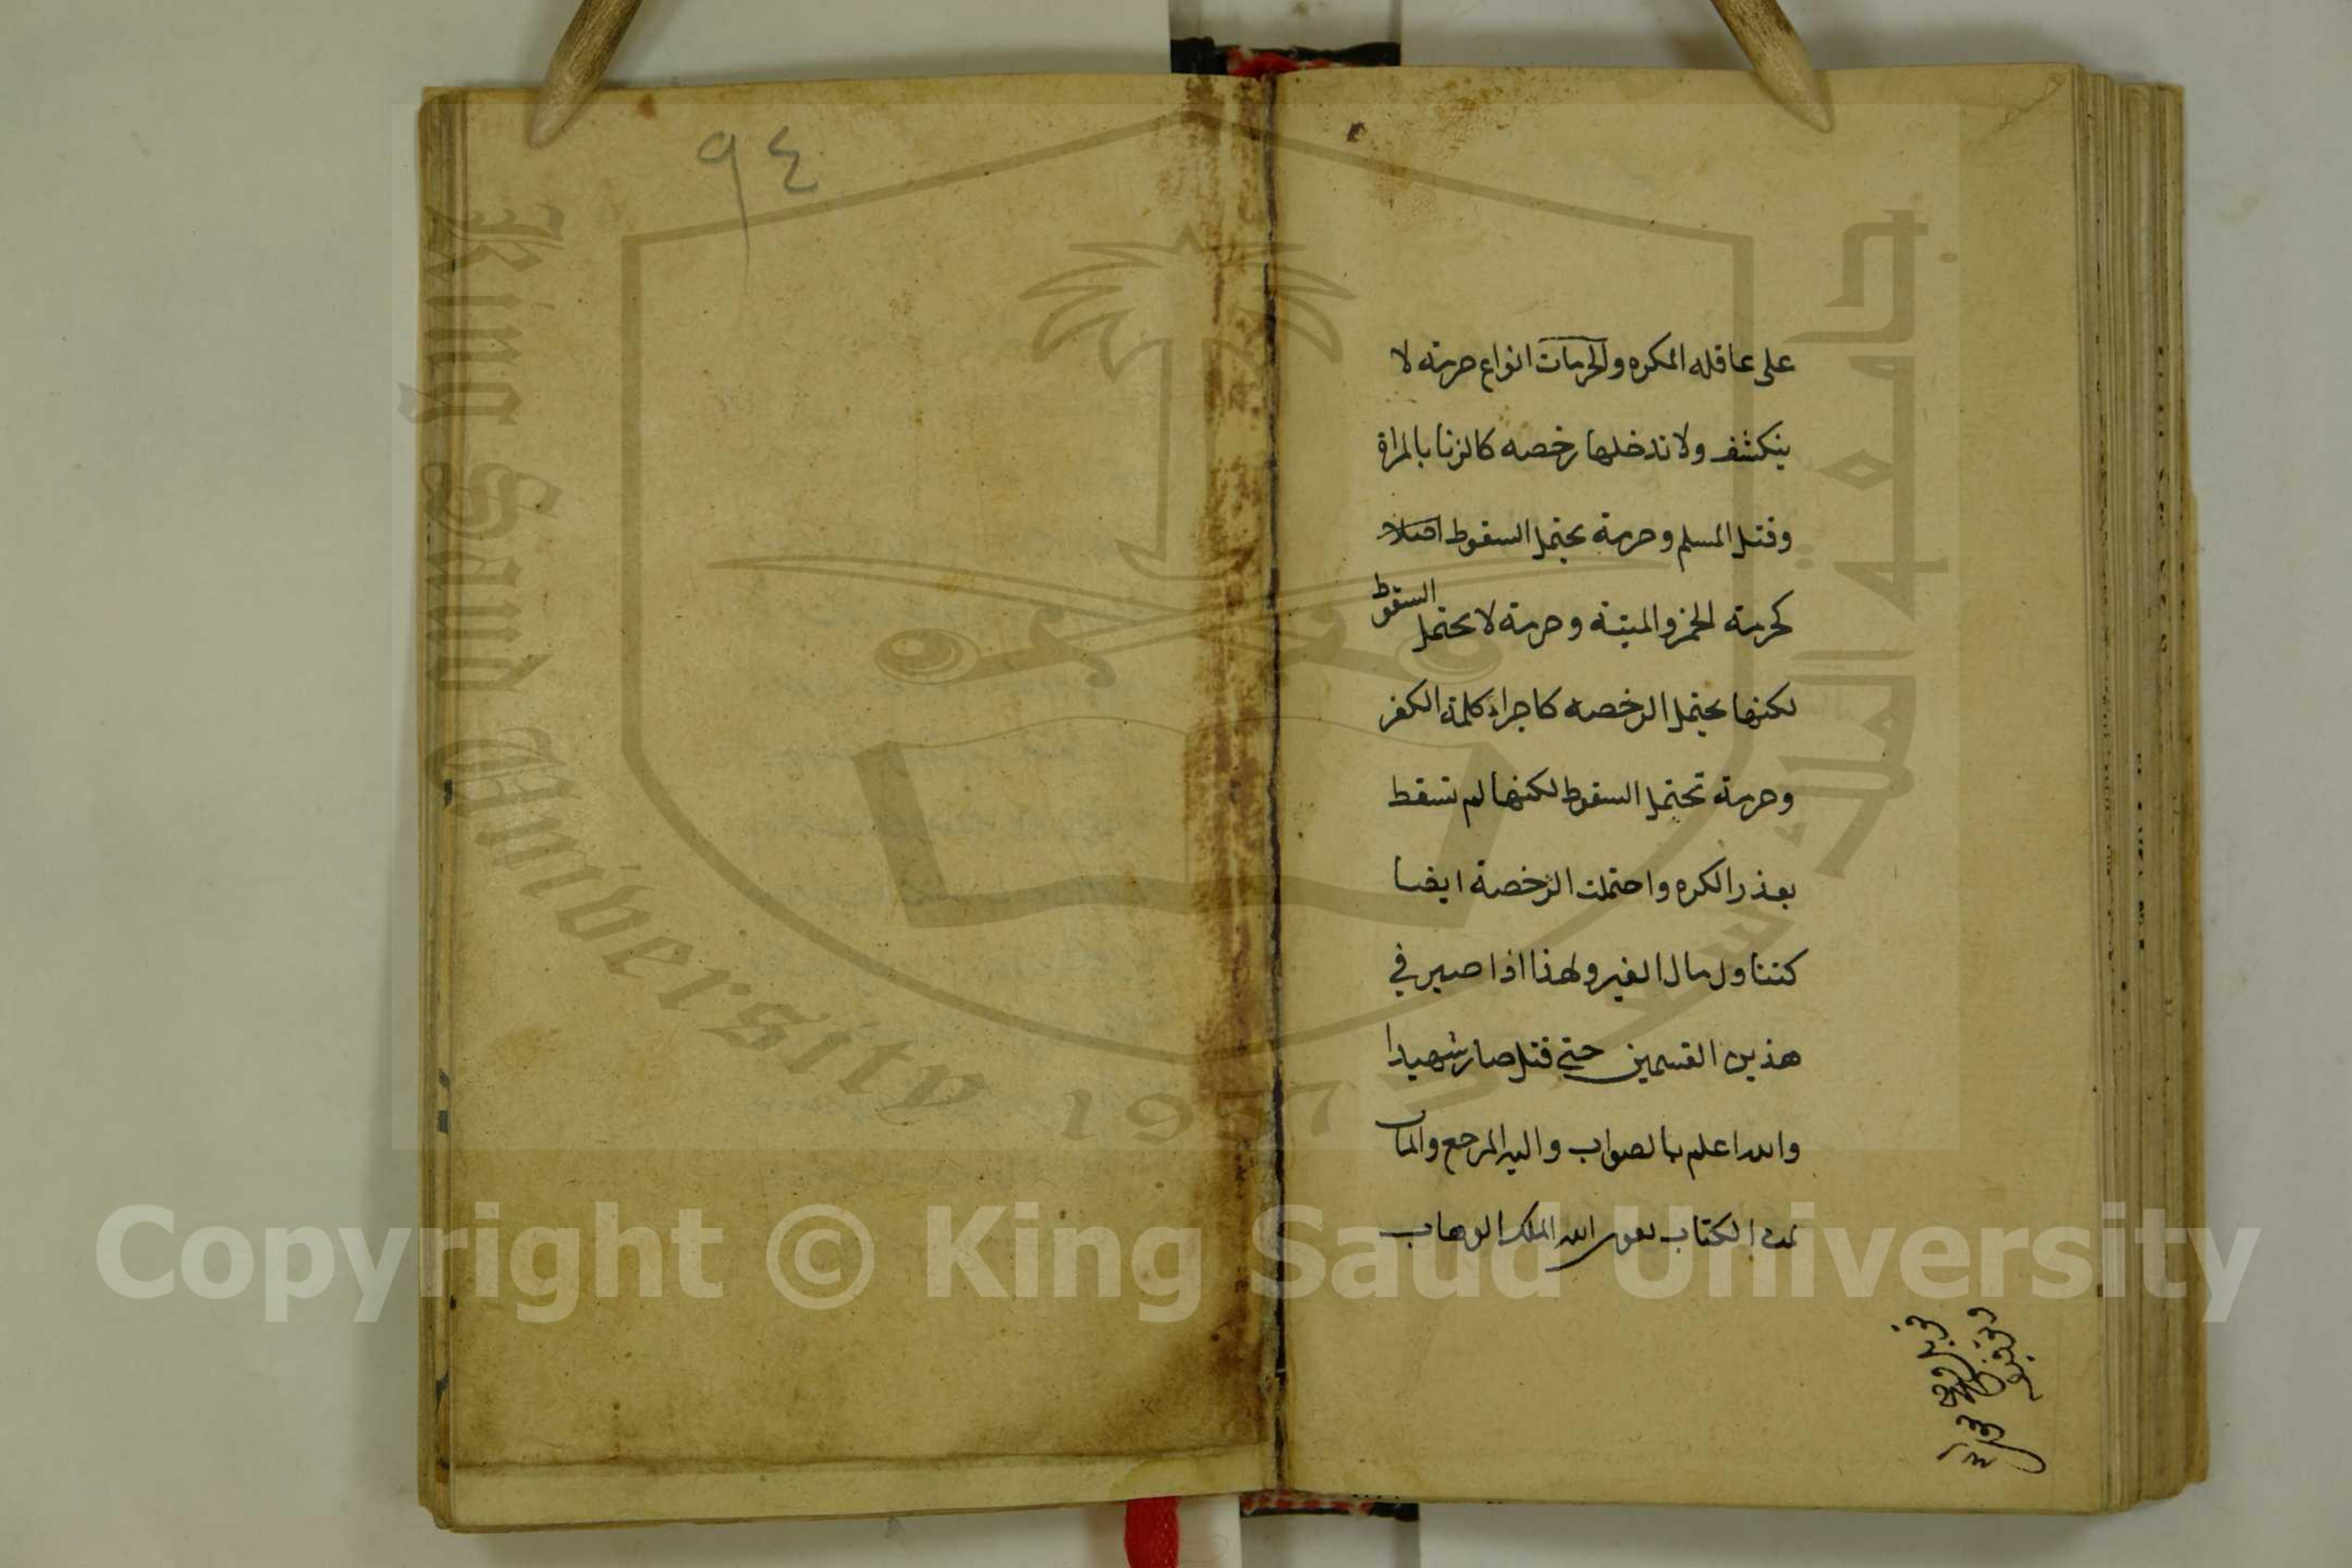 على عاقله المكره والحرمات انواع حرمة لا
ينكشف ولا تدخلها رخصه كالزنا بالمراة
وقتل المسلم وحرمة يحتمل السقوط اصلا
كحرمة الخمر والميتة وحرمة لا يحتمل السقوط
لكنها يحتمل الرخصه كاجراء كلمة الكفر
وحرمة تحتمل السقوط لكنها لم تسقط
بعذر الكره واحتملت الرخصة ايضا
كتناول مال الغير ولهذا اذا صبر في
هذين القسمين حتى قتل صار شهيدا
والله اعلم بالصواب واليه المرجع والماب
تمت الكتاب بعون الله الملك الوهاب
٩٤
King Saud University
1957
جامعة الملك سعود
Copyright © King Saud University